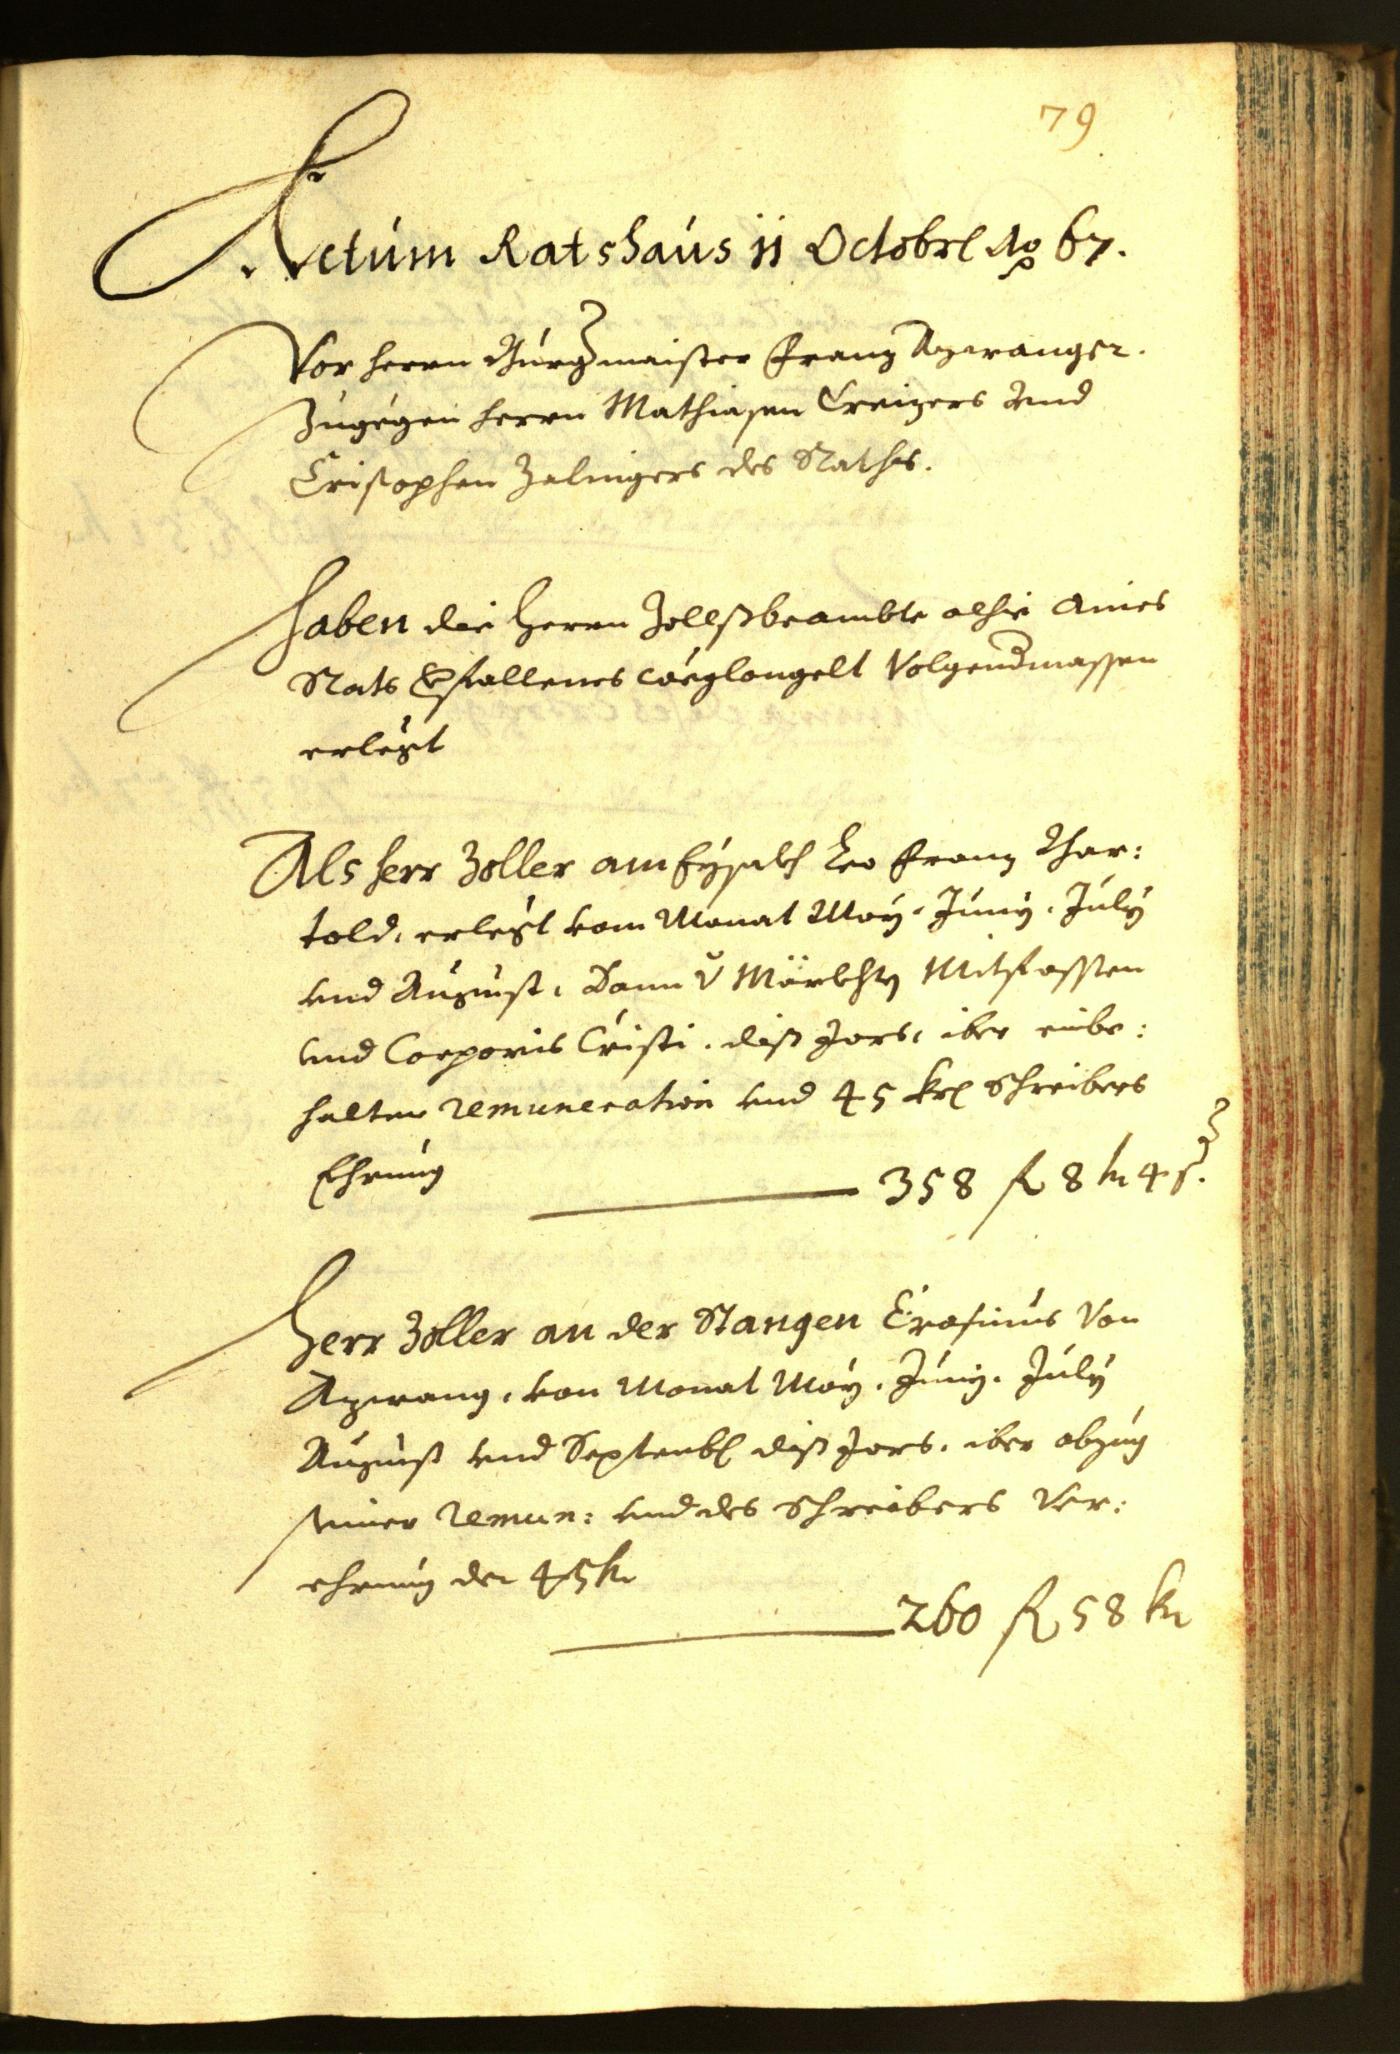 79
Actum Ratshaus 11 Octobr[is] Ao 67.
Vor herrn Burgmaister Franz Azwanger.
Zugegen herrn Mathiasen Creizers und
Cristophen Zalingers des Raths.
Haben die Herrn Zollßbeambte alhie aines
Rats verfallenes weglongelt Volgendmassen
erlegt
Als herr Zoller am Eysackh Leo Franz Bar:
told, erlegt vom Monat May, Juny, July
und August, Dann v Märckht Mitfassten
und Corporis Cristi, diß Jars, iber einbe:
halten remuneration und 45 kr Schreibers
Ehrung
358 fl 8 kr 4 f.
Herr Zoller an der Stangen Erasimus Von
Azwang, von Monat May, Juny, July
August und Septemb diß Jars, iber abzug
seiner remun: und des Schreibers Ver:
ehrung der 45 kr
260 fl 58 kr